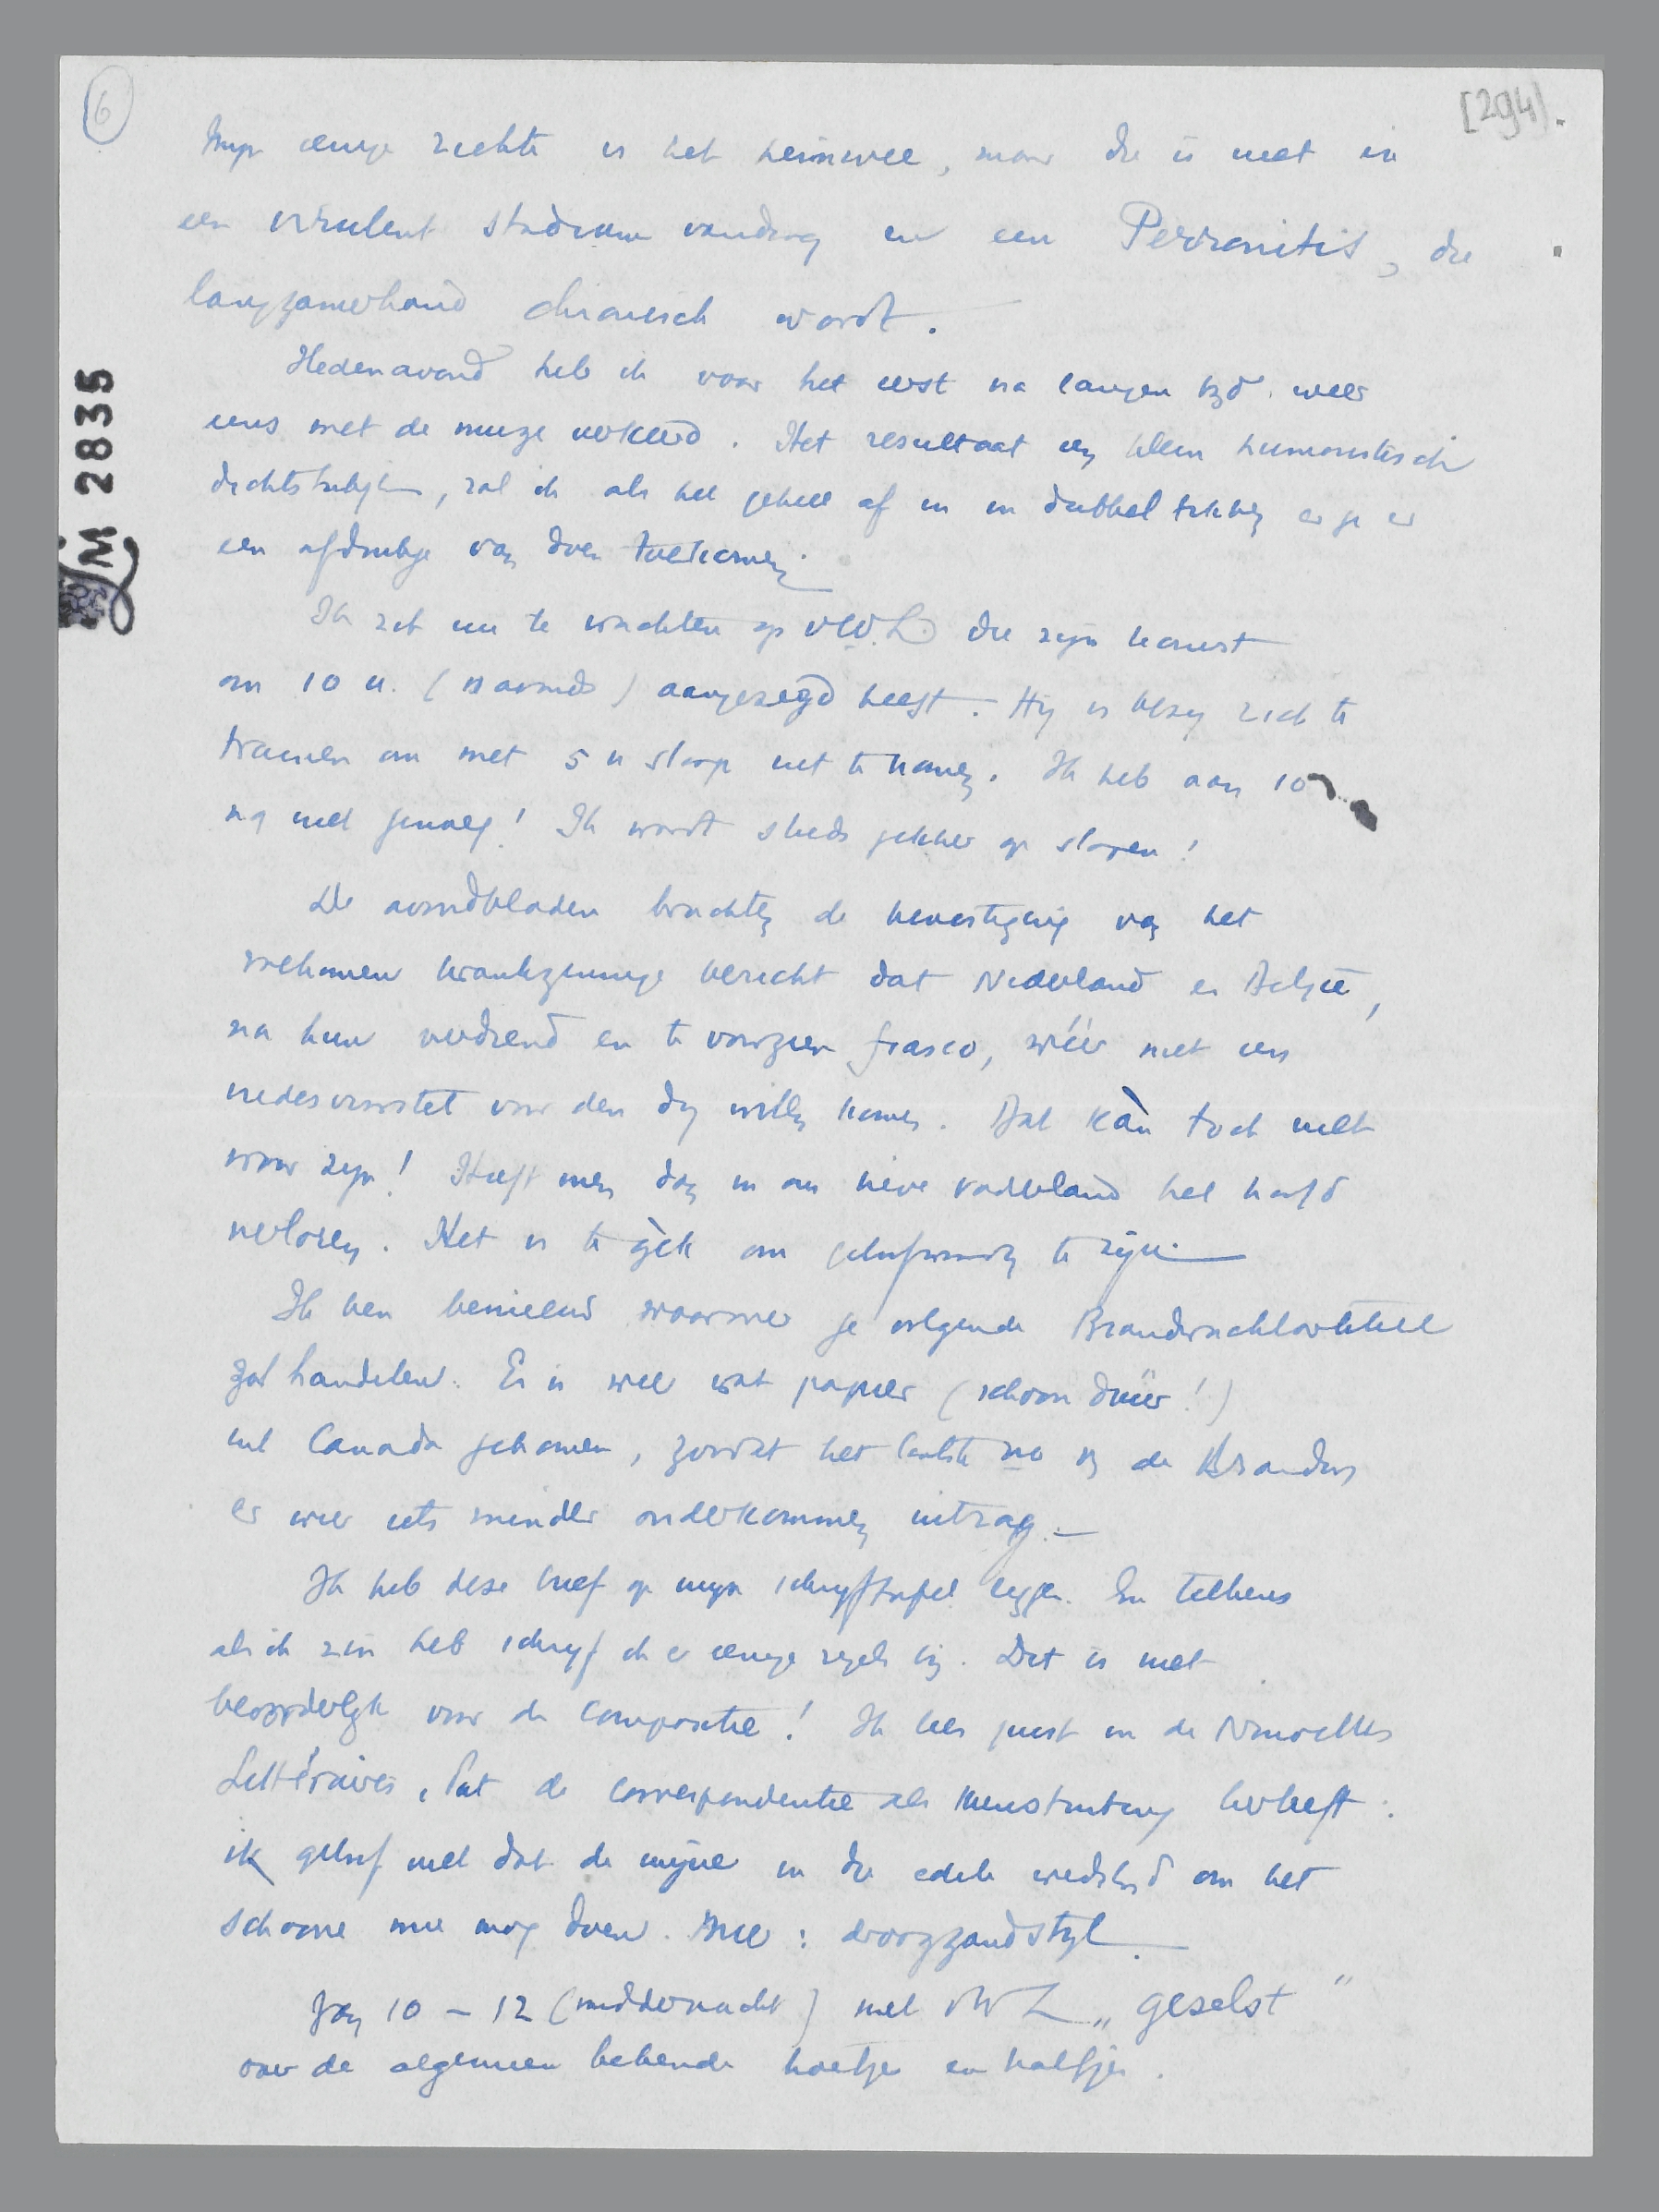 6
[294].
LM 2835
Mijn eenige ziekte is het heimwee, maar die is niet in
een virulent stadium vandaag en een Perronitis, die
langzamerhand chronisch wordt.
Hedenavond heb ik voor het eerst na langen tijd weer
eens met de muze verkeerd. Het resultaat een klein humoristisch
dichtstukje, zal ik als het geheel af is en dubbel tikken en je er
een afdrukje van doen toekomen.
Ik zit nu te wachten op vWL die zijn komst
om 10 u. ('s avonds) aangezegd heeft. Hij is bezig zich te
trainen om met 5 u slaap uit te komen. Ik heb aan 10
nog niet genoeg! Ik wordt steeds gekker op slapen!
De avondbladen brachten de bevestiging van het
volkomen krankzinnige bericht dat Nederland en België,
na hun verdiend en te voorzien fiasco, wéér met een
vredesvoorstel voor den dag willen komen. Dat kàn toch niet
waar zijn! Heeft men dan in ons lieve vaderland het hoofd
verloren. Het is te gèk om geloofwaardig te zijn.—
Ik ben benieuwd waarover je volgende Brandwachtartikel
zal handelen. Er is weer wat papier (schoon duur!)
uit Canada gekomen, zoodat het laatste no v/ de Brandw
er weer iets minder onderkomen uitzag.—
Ik heb deze brief op mijn schrijftafel liggen. En telkens
als ik zin heb schrijf ik er eenige regels bij. Dat is niet
bevorderlijk voor de compositie! Ik lees juist in de Nouvelles
Littéraires, dat de correspondentie als kunstuiting herleeft.
ik geloof niet dat de mijne in die edele wedstrijd om het
schoone mee mag doen. Mee: droogzandstijl.—
Van 10 – 12 (middernacht) met vWL „geselst”
over de algemeen bekende koetjes en kalfjes.